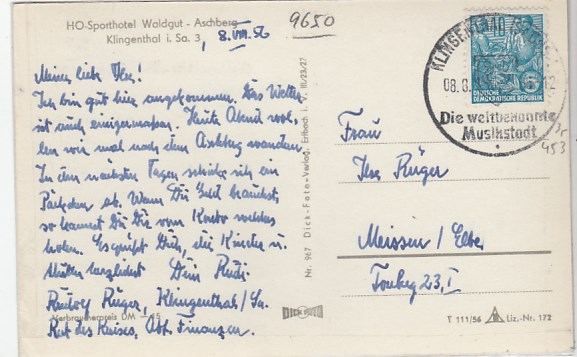 HO-Sporthotel Waldgut - Aschberg
Klingenthal i. Sa. 3, 8.VIII.56
9650
Meine liebe Ilse!
Ich bin gut hier angekommen. Das Wetter
ist auch einigermaßen. Heute Abend wol-
len wir mal nach dem Aschberg wandern.
In den nächsten Tagen schicke ich ein
Päckchen ab. Wenn Du Geld brauchst,
so kannst Du Dir vom Konto welches
holen. Es grüßt Dich, die Kinder u.
Mutter herzlichst Dein Rudi.
Rudolf Rüger, Klingenthal/Sa.
Rat des Kreises, Abt. Finanzen.
Verbraucherpreis DM
Nr. 967 Dick-Foto-Verlag, Erlbach i. V. III/23/27
DICK
KLINGENTHAL
08.8.
12
Die weltbekannte
Musikstadt
DEUTSCHE
DEMOKRATISCHE REPUBLIK
453
Frau
Ilse Rüger
Meissen / Elbe
23, I
T 111/56 Liz.-Nr. 172